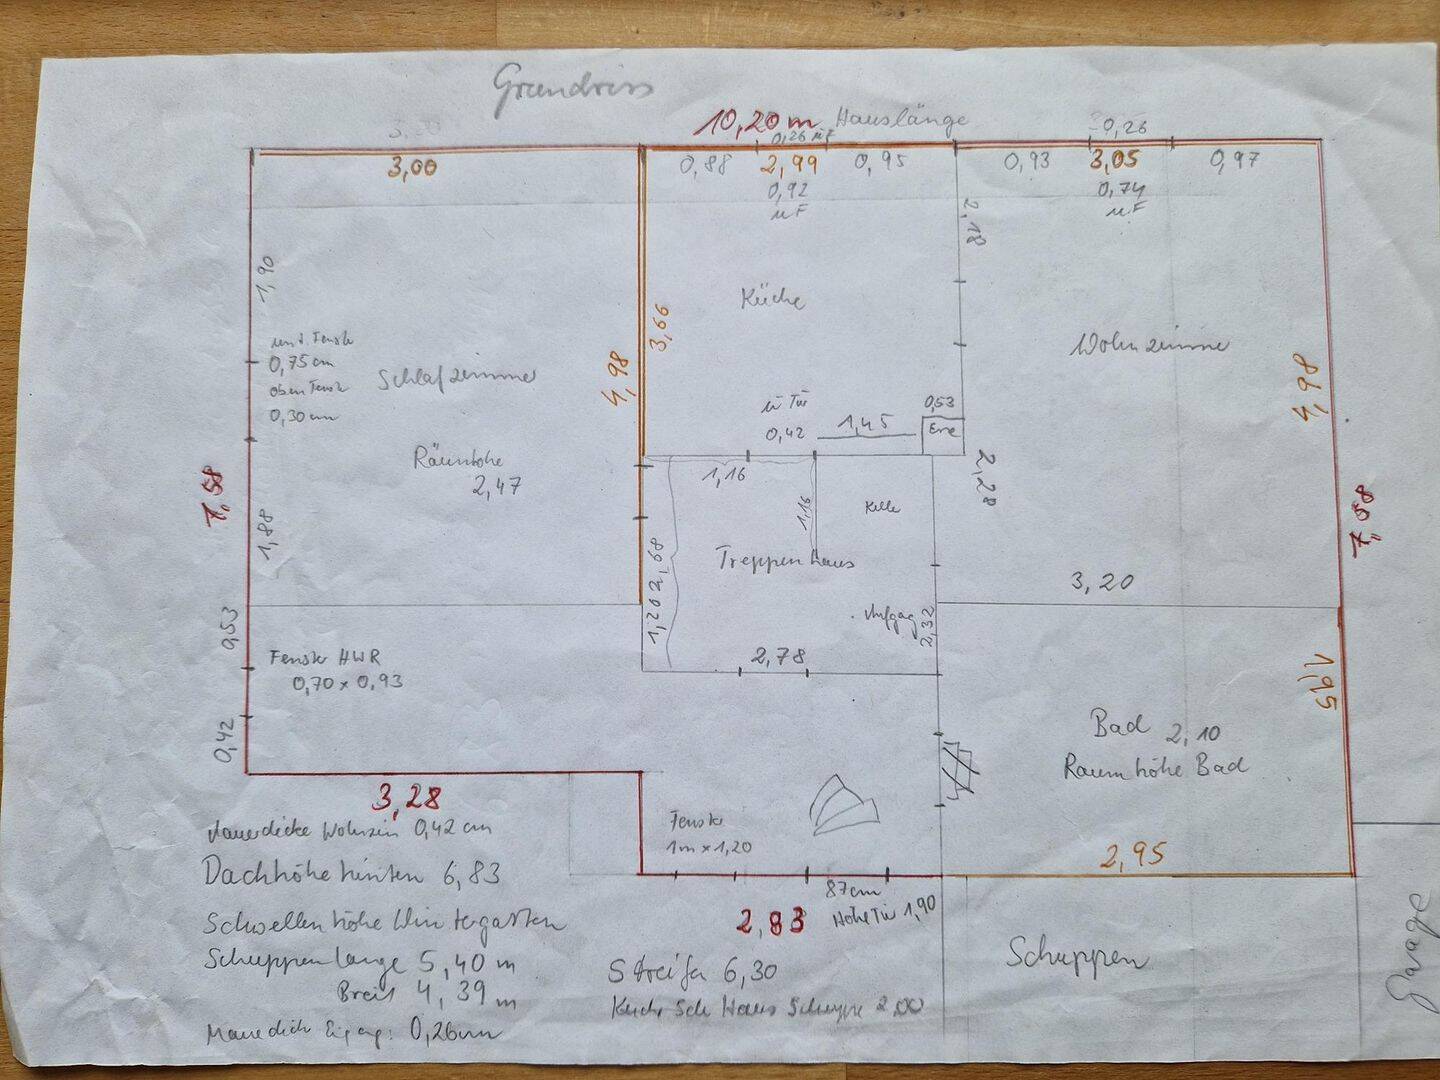 Grundriss
10,20 m Hauslänge
3,00
0,88
2,99
0,95
0,93
3,05
0,97
0,26
0,92
0,74
2,18
1,90
Küche
3,66
4,98
Wohnzimmer
4,98
0,75 cm
0,30 cm
Schlafzimmer
Raumhöhe
2,47
0,42
1,45
0,53
1,16
1,16
2,28
7,58
1,88
Treppenhaus
1,20
2,68
2,32
3,20
0,53
Fenster HWR
0,70 x 0,93
2,78
1,95
0,42
Bad 2,10
Raumhöhe Bad
3,28
Fenster
1m x 1,20
2,95
0,42 cm
Dachhöhe hinten 6,83
87cm
Höhe Tür 1,90
2,83
Schwellenhöhe Wintergarten
Schuppenlänge 5,40 m
Breit 4,39 m
0,26cm
6,30
Schuppen
Garage